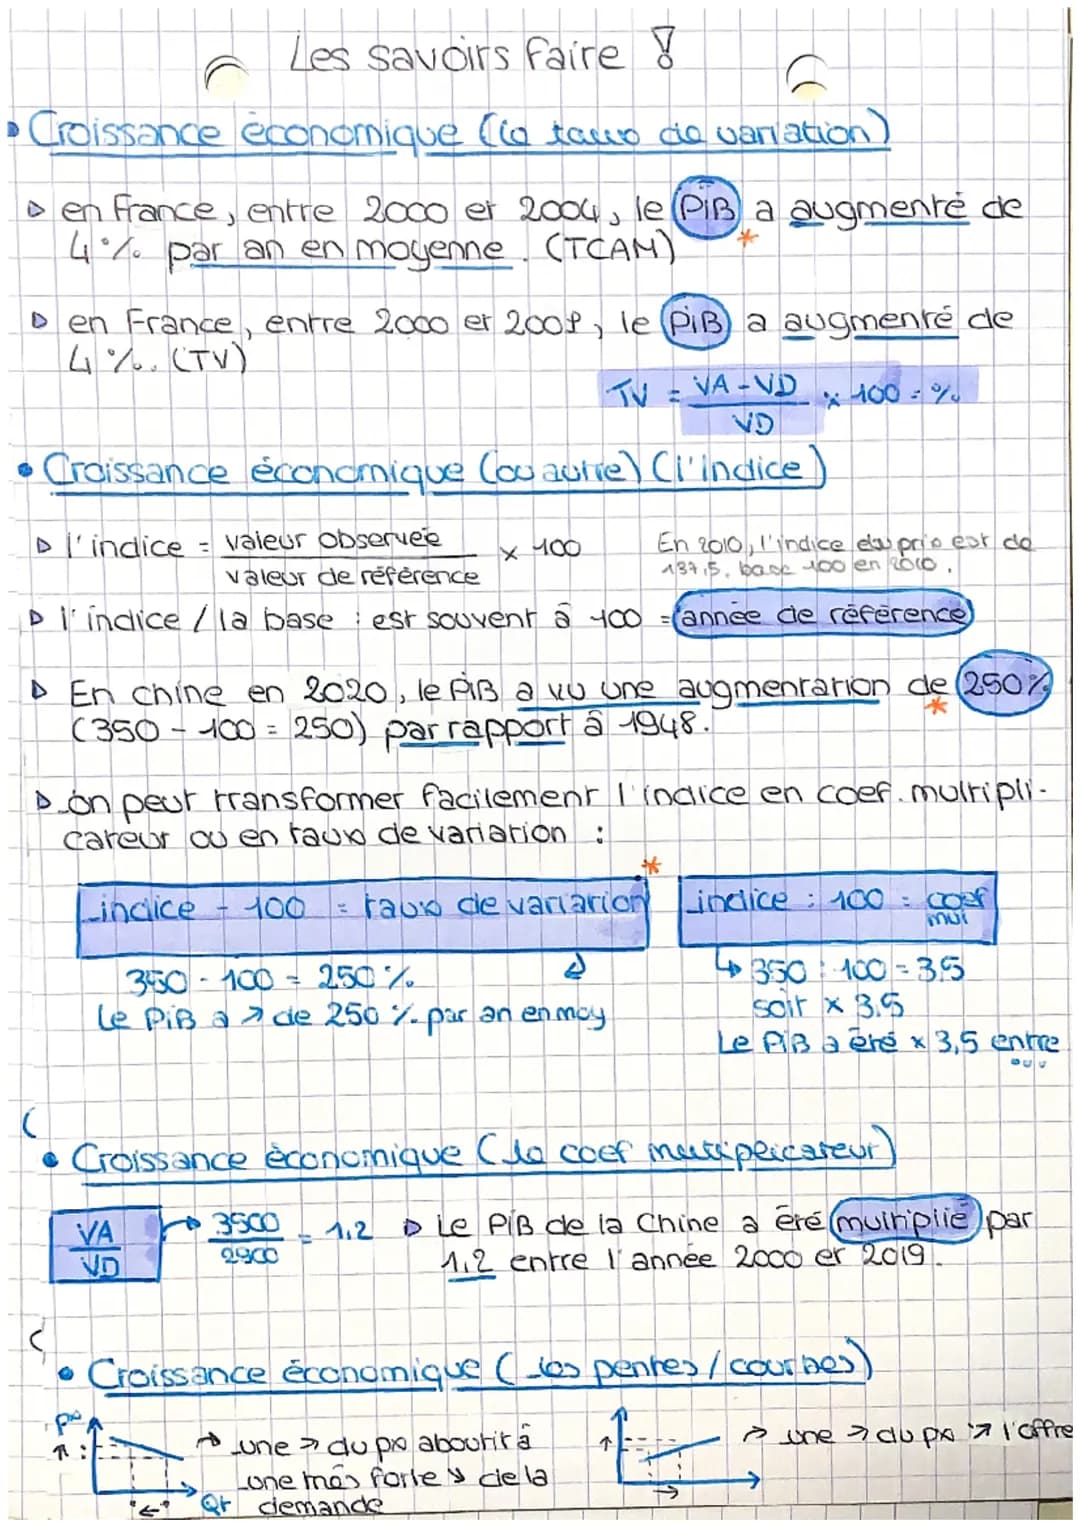 Les savoirs faire !
Croissance économique (le taux de variation)
en France, entre 2000 et 2004, le PiB a augmenté de
4% par an en moyenne. (TCAM)
en France, entre 2000 et 2008, le PiB a augmenté de
4%. (TV)
TV = VA - VD / VD x 100 = %
Croissance économique (ou autre) (l'indice)
l'indice = valeur observée / valeur de référence x 100
En 2010, l'indice du prix est de
137,5, base 100 en 2010.
l'indice / la base : est souvent à 100 = année de référence
En chine en 2020, le PiB a vu une augmentation de 250%
(350 - 100 = 250) par rapport à 1948.
on peut transformer facilement l'indice en coef. multipli-
cateur ou en taux de variation :
indice - 100 = taux de variation
indice : 100 = coef mul
350 - 100 = 250 %
Le PiB a ↗ de 250 % par an en moy
350 : 100 = 3,5
soit x 3,5
Le PiB a été x 3,5 entre
...
Croissance économique (le coef multiplicateur)
VA / VD → 3500 / 2900 = 1,2
Le PiB de la Chine a été multiplié par
1,2 entre l'année 2000 et 2019.
Croissance économique (les pentes / courbes)
px
Qt
une ↗ du px aboutit à
une mas forte ↘ de la
demande
une ↗ du px ↗ l'offre